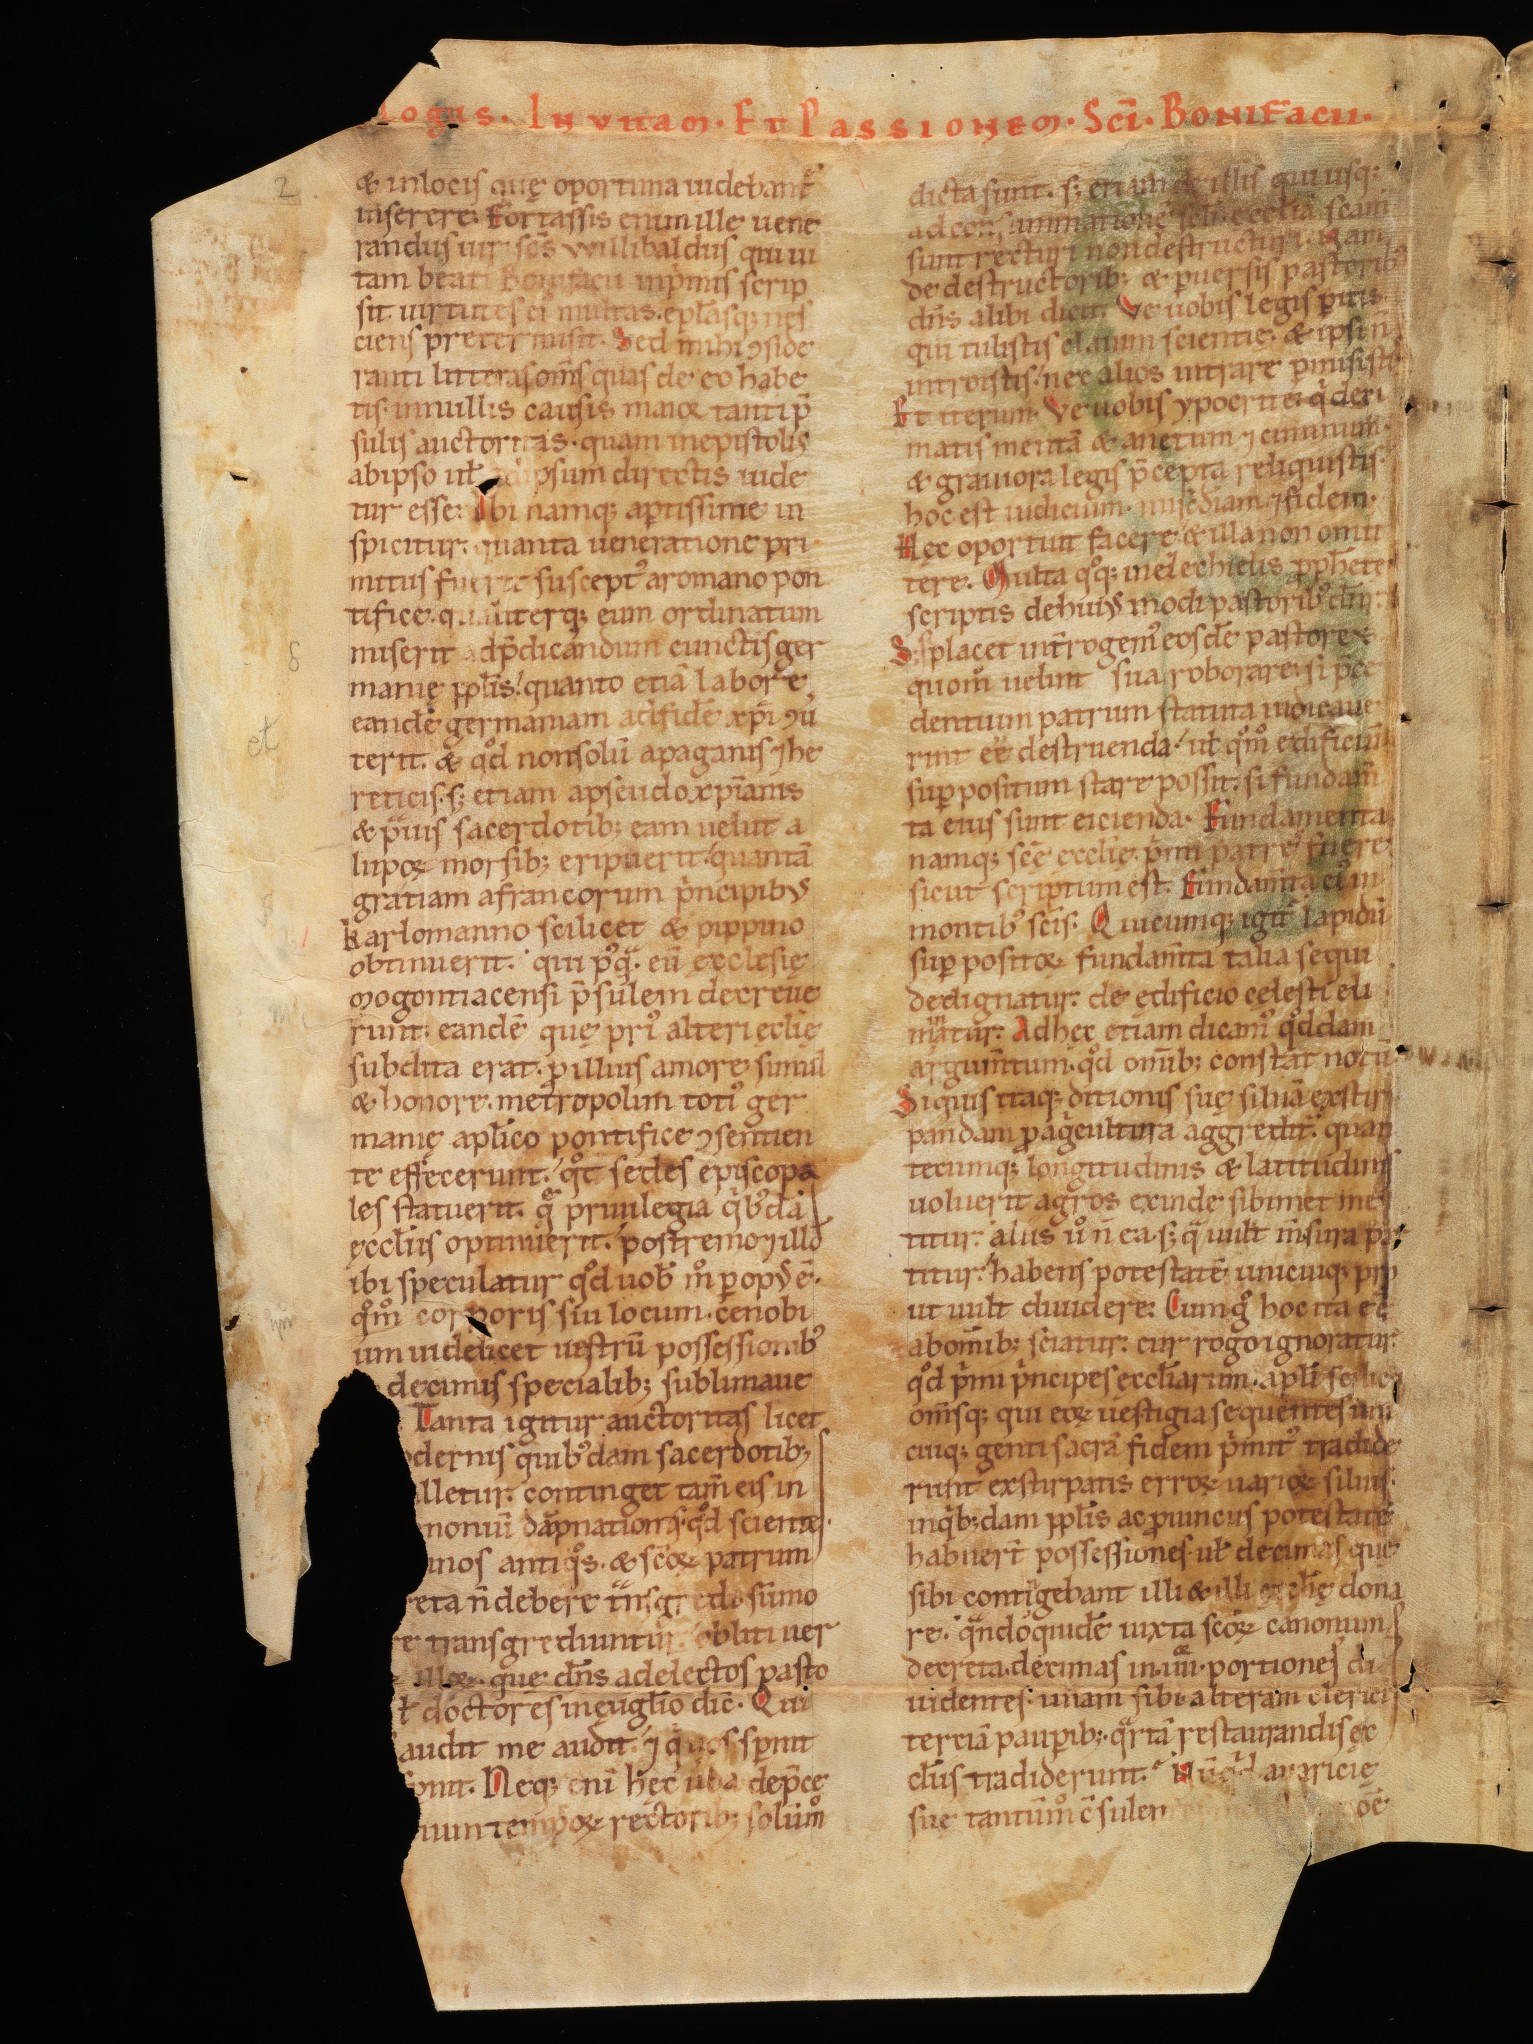 logus. In vitam. Et Passionem. Sci̅. Bonifacii.
2
& in locis quę oportuna uidebant᷒
inserere. Fortassis enim ille uene
randus uir sc̅s Willibaldus qui ui
tam beati Bonifacii inp̅mis scrip
sit uirtutes ei multas. ep̅lasq; nes
ciens pretermisit. Sed mihi ꝯside
ranti litteras om̅s quas de eo habe
tis. in nullis causis maioꝝ tanti p̅
sulis auctoritas. quam in epistolis
ab ipso ut̅ ad ipsum directis uide
tur esse. Ibi namq; aptissime in
spicitur. quanta ueneratione pri
mitus fuerit suscept᷒ a romano pon
tifice. qualiterq; eum ordinatum
miserit ad p̅dicandum cunctis ger
manię pp̅lis. quanto etia̅ labore
eande̅ germaniam ad fide̅ xp̅i ꝯu̅
terit. & qᵒd non solu̅ a paganis ⁊ he
reticis. s; etiam a pseudo xp̅ianis
& p̅uis sacerdotib; eam uelut a
lupoꝝ morsib; eripuerit. quanta̅
gratiam a francorum p̅ncipibus
karlomanno scilicet & pippino
obtinuerit. qui p᷒qᵃ. eu̅ ecclesię
mogontiacensi p̅sulem decreue
runt. eande̅ quę pri᷒ alteri ęclię
subdita erat. ꝑ illius amore simul
& honore. metropolim toti᷒ ger
manię aplico pontifice ꝯsentien
te effecerunt. qᵒt sedes episcopa
les statuerit. qᵉ priuilegia qⁱb᷒da̅
ęccl̅iis optinuerit. postremo ⁊ illᵈ
ibi speculatur qᵒd uob̅ mᵒ p̅ op᷒ e̅.
qᵒmᵒ corporis sui locum. cenobi
um uidelicet uestru̅ possessionib᷒
decimis specialib; sublimaue
Tanta igitur auctoritas licet
odernis quib᷒dam sacerdotib;
lletur. continget tam̅ eis in
moniu̅ da̅pnationis. qᵒd sciente
nos antiqᵒs. & sc̅oꝝ patrum
reta n̅ debere tᵃnsgredi. su̅mo
re transgrediuntur. obliti uer
illoꝝ. que dn̅s ad electos pasto
t̅ doctores in ęuglio dic̅. Qui
audit me audit. ⁊ qⁱ uos spernit
spernit. Neq; eni̅ hęc uba de p̅ce
tium tempoꝝ rectorib; solum̊
dicta sunt. s; etiam de illis qui usq;
ad consummatione̅ scli̅ ęccl̅ia̅ sc̅am
sunt recturi non destructuri. Nam
de destructorib; & puersis pastorib᷒
dn̅s alibi dicit. Ve uobis legis p̅itis
qui tulistis clauim scientie. & ipsi n̅
introistis. nec alios intrare p̅misistis
Et iterum. Ve uobis ypocrite. qⁱ deci
matis menta̅ & anetum ⁊ ciminum.
& grauiora legis p̅cepta reliquistis.
hoc est iudicium. mis̅c̅diam. ⁊ fidem.
Hęc oportuit facere & illa non omit
tere. Multa qᵒq; in ezechielis pphete
scriptis de hui᷒modi pastorib᷒ dn̅r.
S; placet int̅rogem᷒ eosde̅ pastores
quomᵒ uelint sua roborare. si p̅ce
dentium patrum statuta iudicaue
rint e̅e̅ destruenda. ut̅ qᵒmᵒ edificiu̅
suppositum stare possit. si fundam̅
ta eius sunt eicienda. Fundamenta
namq; sc̅e ecclie p̅mi patres fuere
sicut scriptum est. Fundam̅ta ei᷒ in
montib᷒ sc̅is. Quicumq; igit᷒ lapidu̅
suppositoꝝ fundam̅ta talia sequi
dedignatur. de ędificio cęlesti eli
minatur. Ad hęc etiam dicam᷒ qᵒddam
argum̅tum. qᵒd om̅ib; constat notu̅
Si quis itaq; ditionis suę silua̅ exstir
pandam p agⁱcultura aggredit᷒. quan
tecumq; longitudinis & latitudinis
uoluerit agros exinde sibimet me
titur. aliis uᵒ n̅ ea. s; qᵃ uult m̅sura pa
titur. habens potestate̅ unicuiq; p̅p
ut uult diuidere. Cum gᵒ hoc ita e̅e̅
ab om̅ib; sciatur. cur rogo ignoratur
qᵒd p̅mi p̅ncipes ęccl̅iarum. apl̅i scilicet
om̅sq; qui eoꝝ uestigia sequentes uni
cuiq; genti sacra̅ fidem p̅mit᷒ tradide
runt exstirpatis erroꝝ uarioꝝ siluis.
in qⁱb;dam pplis ac puinciis potestate̅
habuer̅t possessiones. ut̅ decimas quę
sibi contigebant illi & illi ęccl̅ię dona
re. qᵃndoquide̅ iuxta sc̅oꝝ canonum
decreta. decimas in .iiii. portiones di
uidentes. unam sibi. alteram clericis
tercia̅ paup̅ib;. qᵃrta̅ restaurandis ęc
cl̅iis tradiderunt. Nu̅qᵈ auaricię
suę tantu̅mᵒ c̅sulen